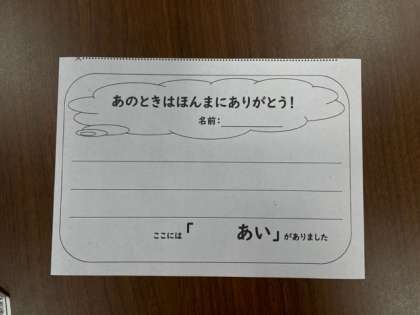 あのときはほんまにありがとう!
名前：
ここには「　　あい」がありました